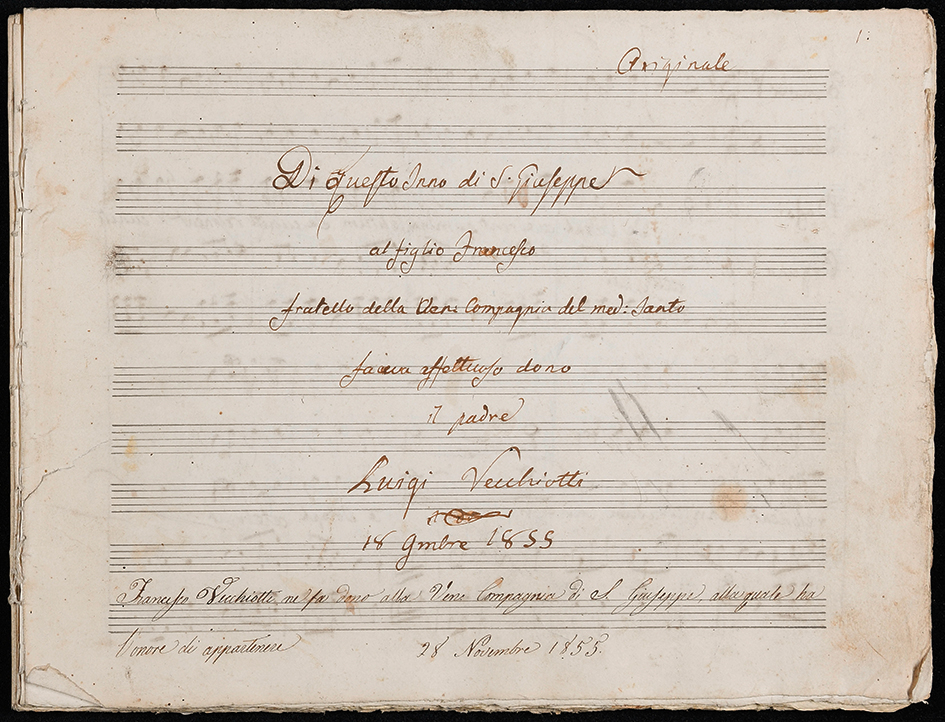 1:
Originale
Di questo Inno di S. Giuseppe
al figlio Francesco
fratello della Ven: Compagnia del med: Santo
faceva affettuoso dono
il padre
Luigi Vecchiotti
18 9mbre 1855
Francesco Vecchiotti ne fa dono alla Vene Compagnia di S. Giuseppe, alla quale ha
l'onore di appartenere 28 Novembre 1855.